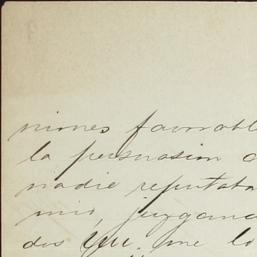 niones favorabl
la persuasion d
nadie reputata
mio, juzgand
dos que me lo